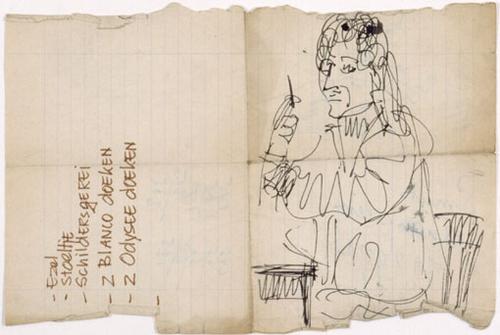 - Ezel
- stoeltje
- Schildersgerei
- 2 BLANCO doeken
- 2 Odysee doeken
-